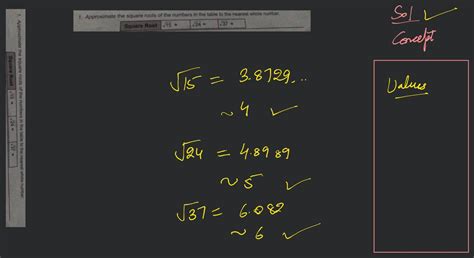 1. Approximate the square roots of the numbers in the table to the nearest whole number.
Square Root √15 ≈ √24 ≈ √37 ≈
1. Approximate the square roots of the numbers in the table to the nearest whole number.
Square Root √15 ≈ √24 ≈ √37 ≈
Sol ✓
Concept
Values
√15 = 3.8729...
~ 4 ✓
√24 = 4.8989
≈ 5 ✓
√37 = 6.082
≈ 6 ✓